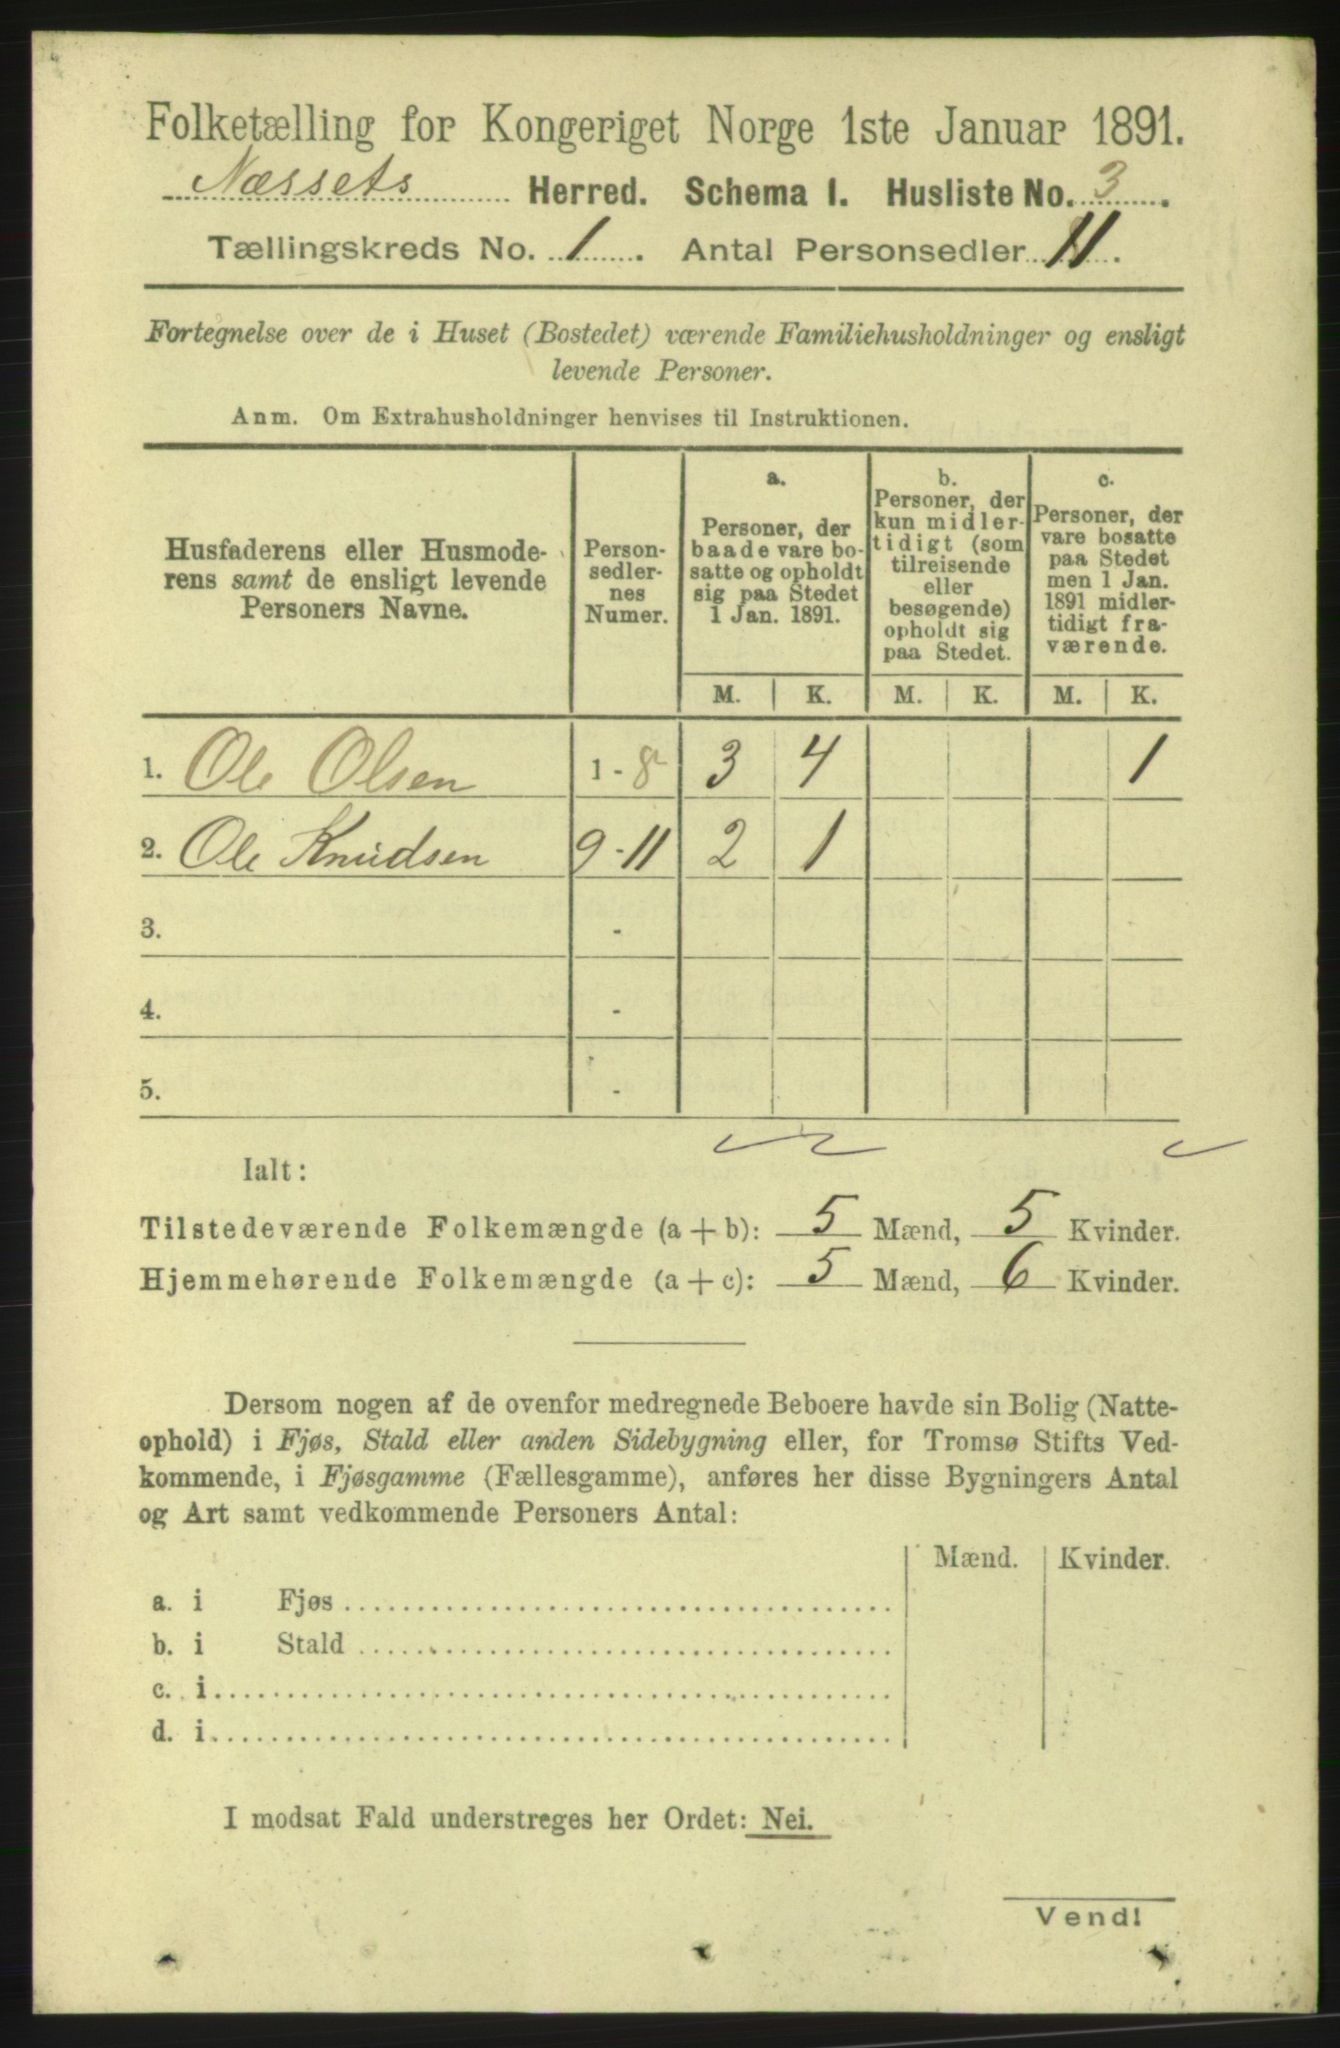 Folketælling for Kongeriget Norge 1ste Januar 1891.
Næssets Herred. Schema 1. Husliste No. 3.
Tællingskreds No. 1. Antal Personsedler 11.
Fortegnelse over de i Huset (Bostedet) værende Familiehusholdninger og ensligt
levende Personer.
Anm. Om Extrahusholdninger henvises til Instruktionen.
Husfaderens eller Husmode-
rens samt de ensligt levende
Personers Navne.
Person-
sedler-
nes
Numer.
a.
Personer, der
baade vare bo-
satte og opholdt
sig paa Stedet
1 Jan. 1891.
b.
Personer, der
kun midler-
tidigt (som
tilreisende
eller
besøgende)
opholdt sig
paa Stedet.
c.
Personer, der
vare bosatte
paa Stedet
men 1 Jan.
1891 midler-
tidigt fra-
værende.
M. K. M. K. M. K.
1. Ole Olsen 1-8 3 4 1
2. Ole Knudsen 9-11 2 1
3. -
4. -
5. -
Ialt:
Tilstedeværende Folkemængde (a+b): 5 Mænd, 5 Kvinder.
Hjemmehørende Folkemængde (a+c): 5 Mænd, 6 Kvinder.
Dersom nogen af de ovenfor medregnede Beboere havde sin Bolig (Natte-
ophold) i Fjøs, Stald eller anden Sidebygning eller, for Tromsø Stifts Ved-
kommende, i Fjøsgamme (Fællesgamme), anføres her disse Bygningers Antal
og Art samt vedkommende Personers Antal:
Mænd. Kvinder.
a. i Fjøs
b. i Stald
c. i
d. i
I modsat Fald understreges her Ordet: Nei.
Vend!